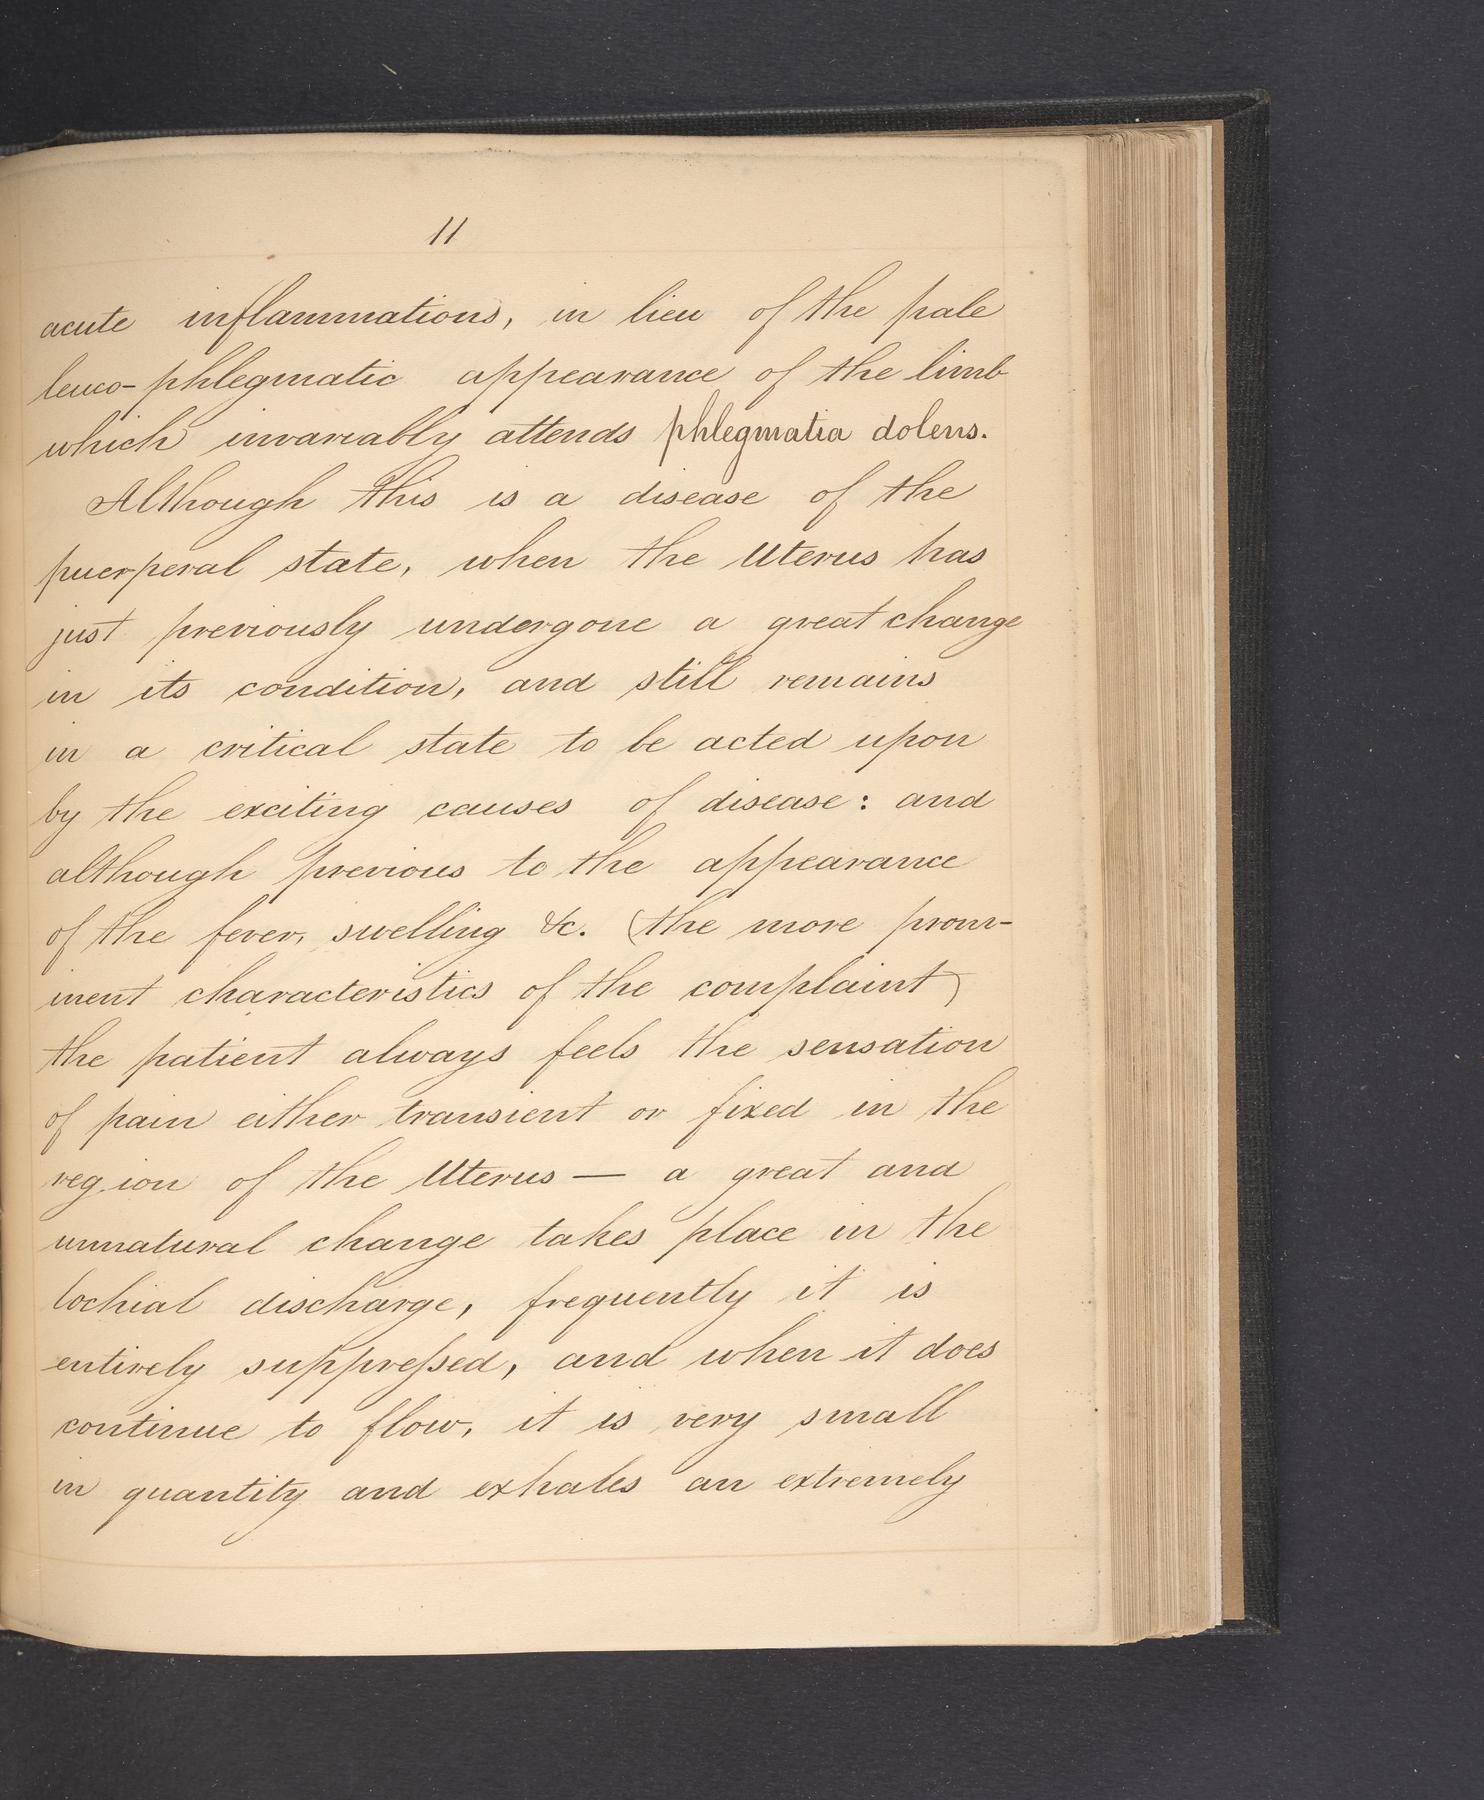 11
acute inflammations, in lieu of the pale
leuco-phlegmatic appearance of the limb
which invariably attends phlegmatia dolens.
Although this is a disease of the
puerperal state, when the Uterus has
just previously undergone a great change
in its condition, and still remains
in a critical state to be acted upon
by the exciting causes of disease: and
although previous to the appearance
of the fever, swelling &c. (the more prom-
inent characteristics of the complaint)
the patient always feels the sensation
of pain either transient or fixed in the
region of the Uterus — a great and
unnatural change takes place in the
lochial discharge, frequently it is
entirely suppreſsed, and when it does
continue to flow, it is very small
in quantity and exhales an extremely